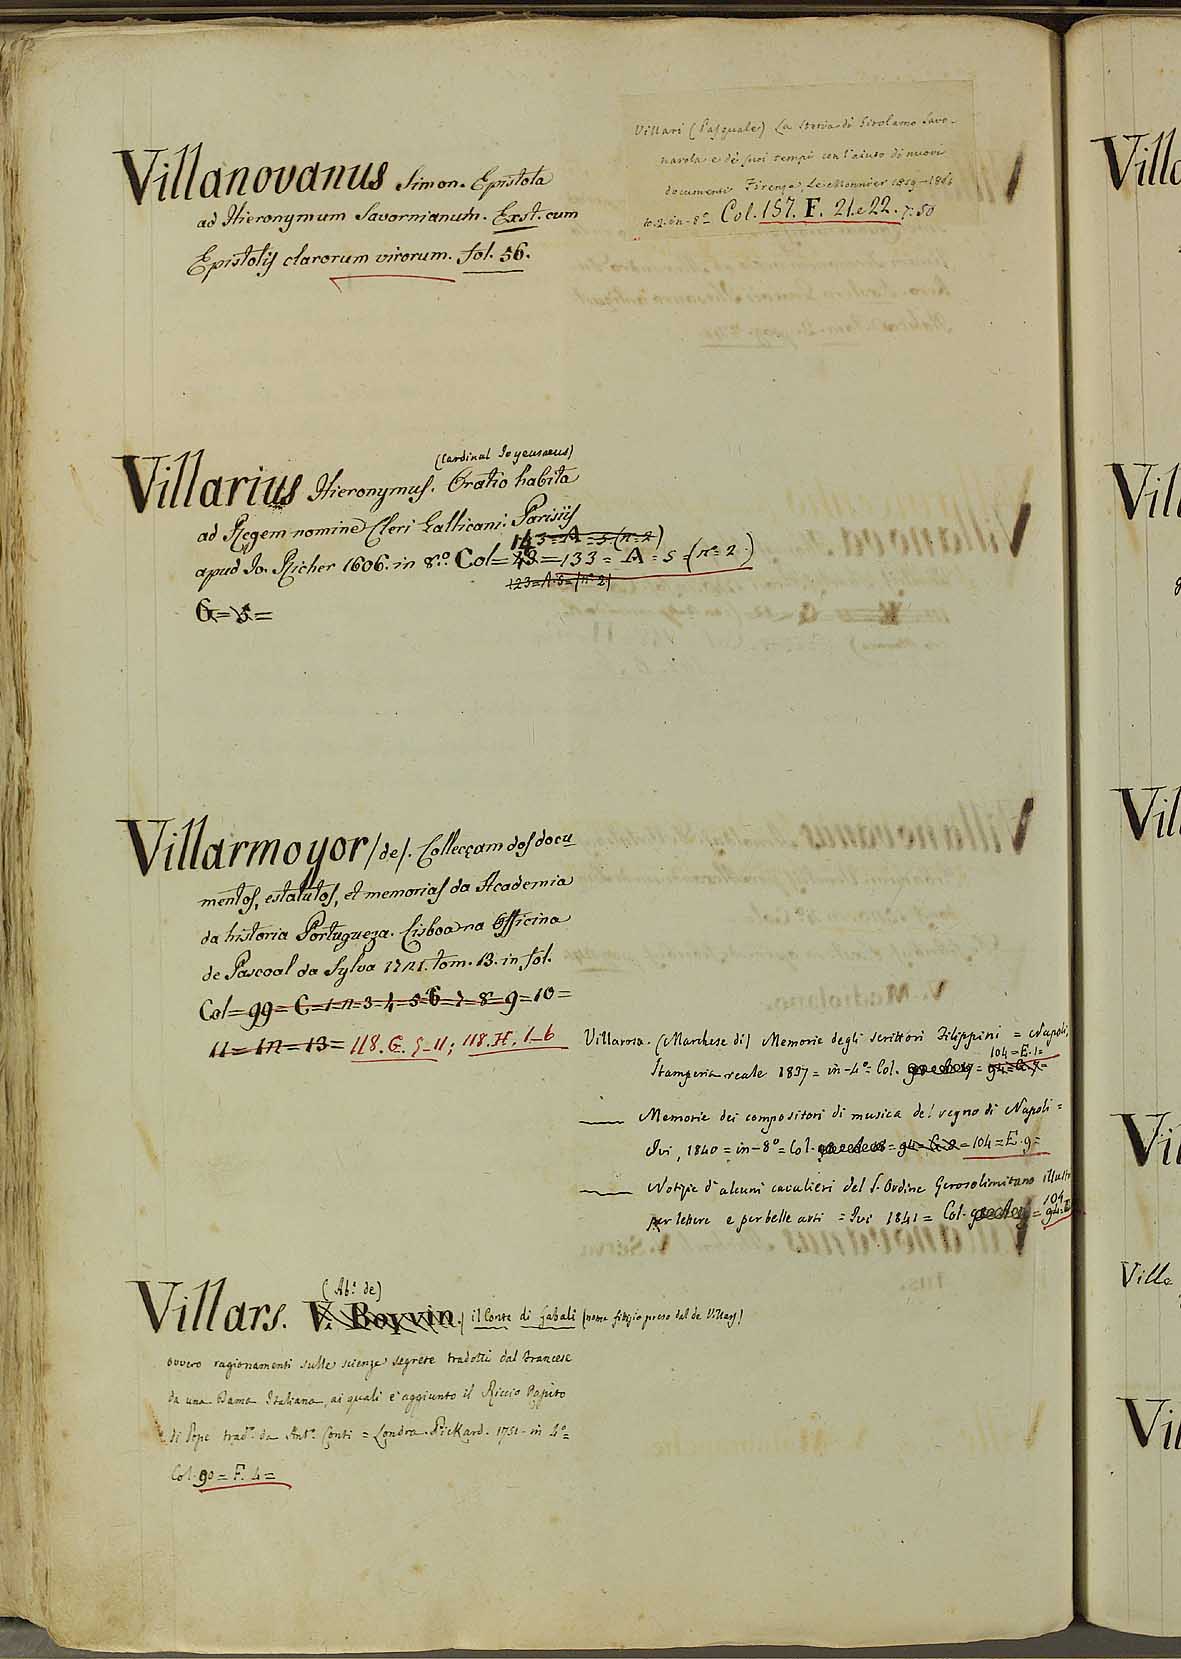 Villanovanus Simon. Epistola
ad Hieronymum Savornianum. Exst. cum
Epistolis clarorum virorum. fol. 56.
Villari (Pasquale) La Storia di Girolamo Savo-
narola e de' suoi tempi con l'aiuto di nuovi
documenti Firenze, Le Monnier 1859-1861
to. 2. in-8º Col. 157. F. 21. e 22. 7:50
(Cardinal Joyeusaeus)
Villarius Hieronymus. Oratio habita
ad Regem nomine Cleri Gallicani: Parisiis
143=A=5(nº 2)
apud Jo. Richer 1606. in 8º. Col= =133= A=5=(nº 2.)
123=A.5=(nº 2)
G=5=
Villarmoyor /de/. Collecçam dos docu
mentos, estatutos, et memorias da Academia
da historia Portugueza. Lisboa na Officina
de Pascoal da Sylva 1721. tom. 13. in fol.
Col=99=C=1=2=3=4=5=6=7=8=9=10=
11=12=13= 118. G. 5-11; 118. H. 1-6
Villarosa. (Marchese di) Memorie degli scrittori Filippini = Napoli,
104=E.1=
Stamperia reale 1837= in-4º= Col. =94=
Memorie dei compositori di musica del regno di Napoli=
Ivi, 1840= in-8º= Col. =94= =104=E.9=
Notizie d'alcuni cavalieri del S. Ordine Gerosolimitano illustri
104
per lettere e per belle arti = Ivi 1841= Col. =94=
(Ab.e de)
Villars. V. Boyvin. il Conte di Gabalì (nome fitizio preso dal de Villars)
ovvero ragionamenti sulle scienze segrete tradotti dal francese
da una Dama Italiana, ai quali è aggiunto il Riccio Rapito
di Pope trad.º da Ant.º Conti = Londra. Pickard. 1751. in 4º=
Col. 90= F. 4=
Villa
Vill
Vil
Vil
Villa
Vil